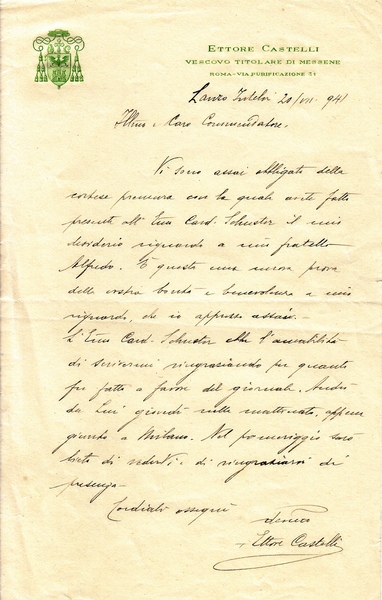 ETTORE CASTELLI
VESCOVO TITOLARE DI MESSENE
ROMA - VIA PURIFICAZIONE
Lanzo Intelvi 20/VII. 941
Illmo e Caro Commendatore,
Vi sono assai obbligato della
cortese premura con la quale avete fatto
presente all'Emo Card. Schuster il mio
desiderio riguardo a mio fratello
Alfredo. È questa una nuova prova
della vostra bontà e benevolenza a mio
riguardo, che io apprezzo assai.
L'Emo Card. Schuster ebbe l'amabilità
di scrivermi ringraziando per quanto
fu fatto a favore del giornale. Andrò
da Lui giovedì nella mattinata, appena
giunto a Milano. Nel pomeriggio sarò
lieto di vederVi e di ringraziarvi di
presenza.
Cordiali ossequi
devmo
+ Ettore Castelli